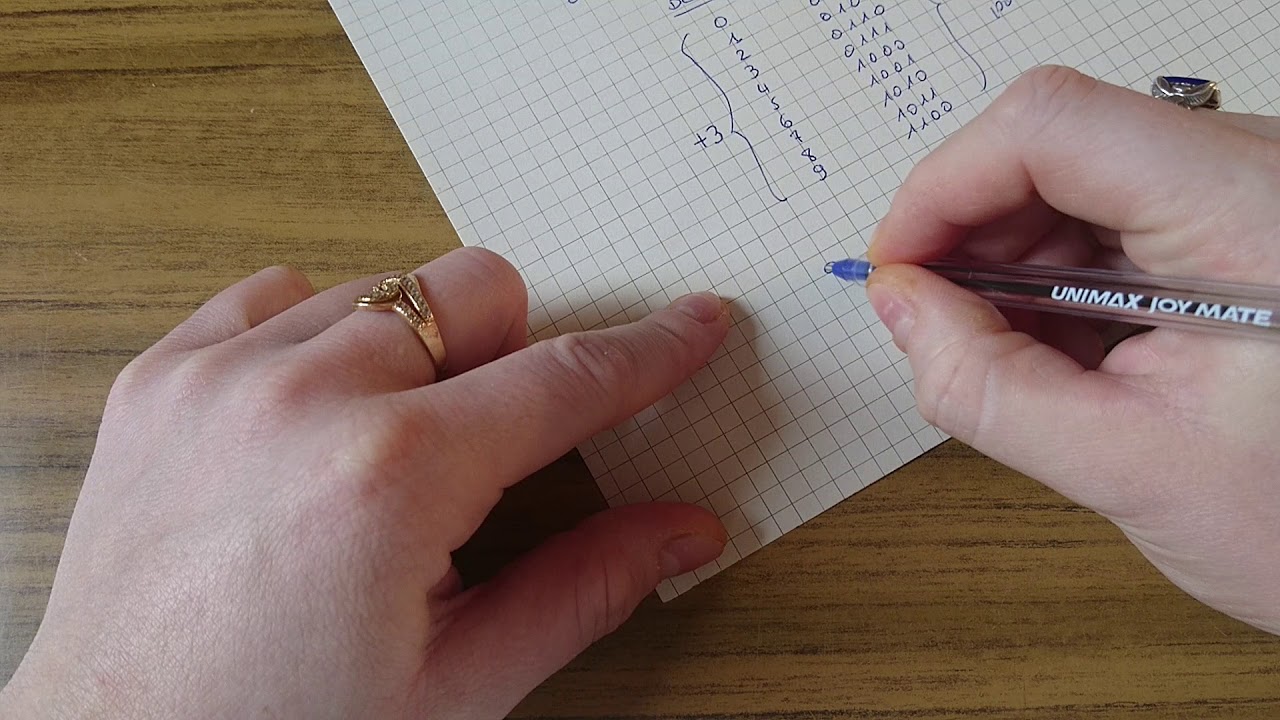 0
1
2
3
4
5
6
7
8
9
+3
0110
0111
1000
1001
1010
1011
1100
UNIMAX JOY MATE